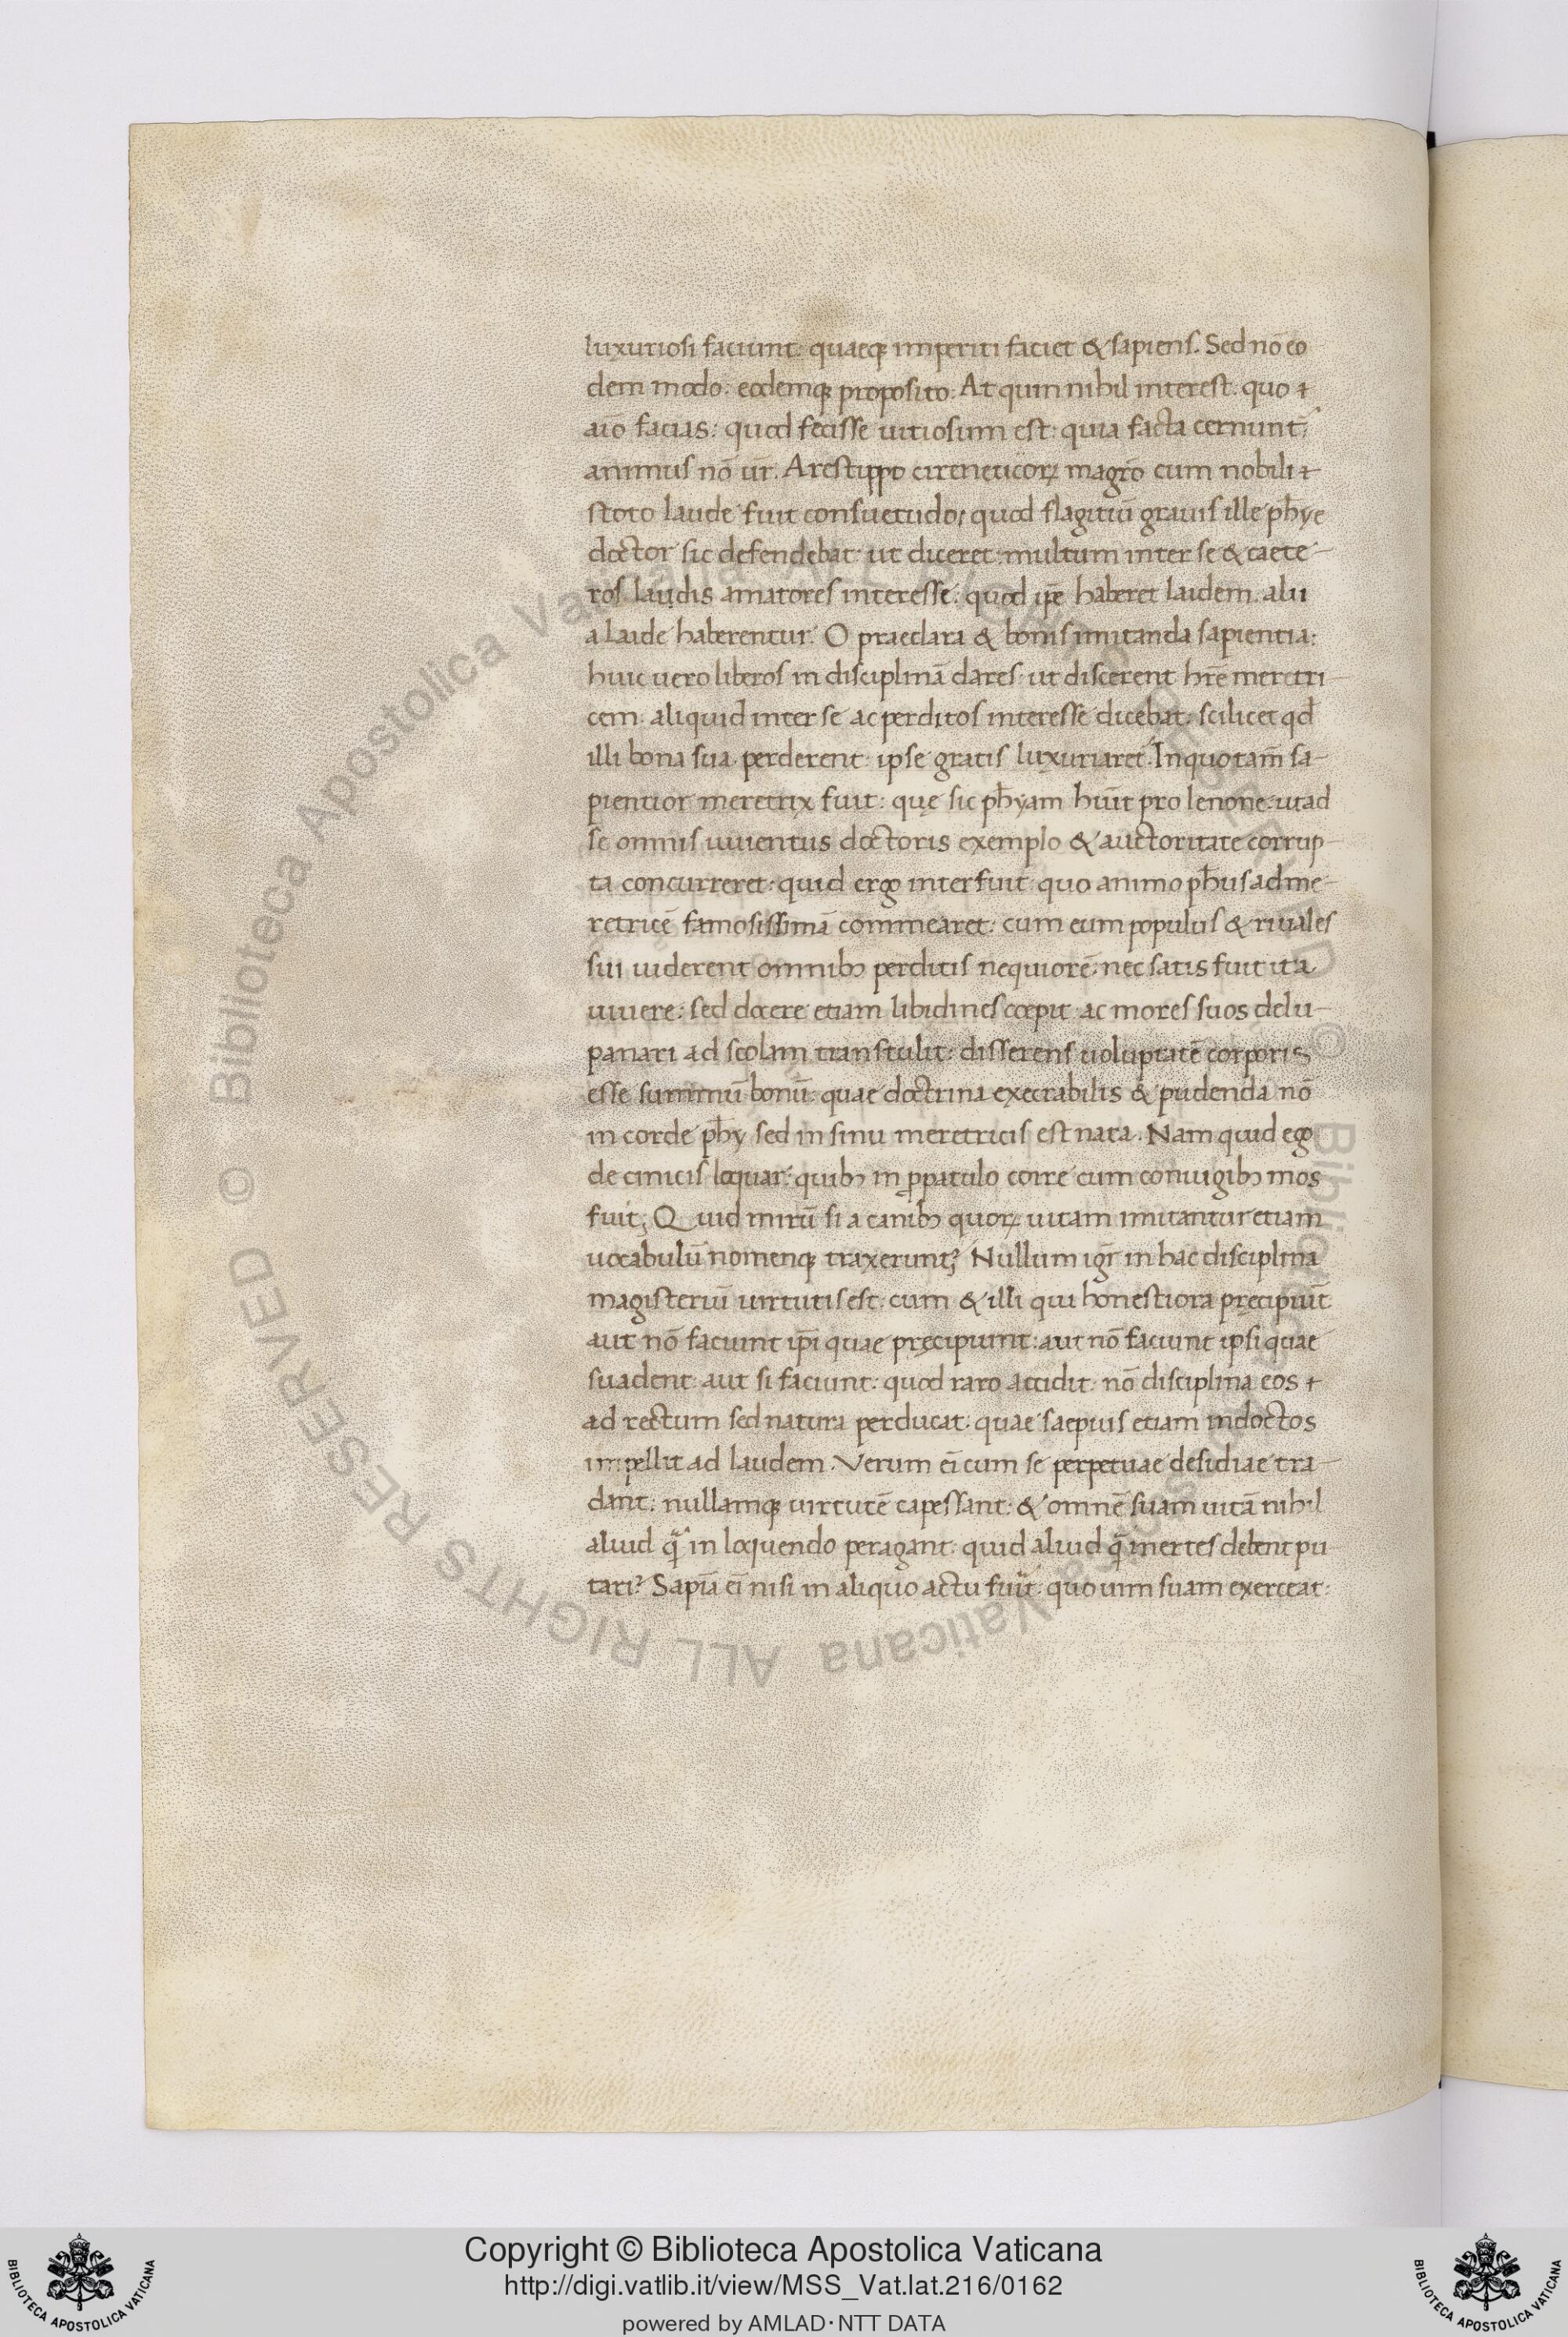 luxuriosi faciunt: quaeq; imperiti faciet & sapiens. Sed nō eo
dem modo: eodemq; proposito: At quin nihil interest. quo
aīo facias: quod fecisse uitiosum est: quia facta cernunt̄,
animus nō ur̄. Arestippo cireneticoꝝ magrō cum nobili
scoto laude fuit consuetudo; quod flagitiū grauis ille ph̄ye
doctor sic defendebat: ut diceret: multum inter se & caete-
ros laudis amatores interesse: quod ip̄e haberet laidem. alii
a laide haberentur. O praeclara & bonis imitanda sapientia:
huic uero liberos in disciplinā dares: ut discerent hr̄e meretri-
cem. aliquid inter se ac perditos interesse dicebat: scilicet qd̄
illi bona sua perderent: ipse gratis luxuriaret. In quo tam̄ sa-
pientior meretrix fuit: quę sic ph̄yam hūit pro lenone: ut ad
se omnis iuuentus doctoris exemplo & auctoritate corrup-
ta concurreret: quid ergo interfuit quo animo ph̄us ad me-
retricē famosissimā commearet: cum eum populus & riuales
sui uiderent omnibꝫ perditis nequiorē: nec satis fuit ita
uiuere: sed docere etiam libidines cœpit ac mores suos de lu-
panari ad scolam transtulit: disserens uoluptatē corporis
esse summū bonū: quae doctrina execrabilis & pudenda nō
in corde ph̄y sed in sinu meretricis est nata. Nam quid ego
de cinicis loquar: quibꝫ in ꝓpatulo coire cum coniugibꝫ mos
fuit; Quid mirū si a canibꝫ quoꝝ uitam imitantur etiam
uocabulū nomenq; traxerunt? Nullum igr̄ in hac disciplina
magisteriū uirtutis est: cum & illi qui honestiora pręcipiūt
aut nō faciunt ip̄i quae pręcipiunt: aut nō faciunt ipsi quae
suadent: aut si faciunt: quod raro accidit: nō disciplina eos
ad rectum sed natura perducat: quae saepius etiam indoctos
impellit ad laudem. Verum ei cum se perpetuae desidiae tra-
dant: nullamq; uirtutē capessant: & omnē suam uitā nihil
aliud q̄ in loquendo peragant: quid aliud q̄ inertes debent pu
tari? Sapīa ei nisi in aliquo actu fuīt: quo uim suam exerceat:
Copyright © Biblioteca Apostolica Vaticana
http://digi.vatlib.it/view/MSS_Vat.lat.216/0162
powered by AMLAD·NTT DATA
BIBLIOTECA APOSTOLICA VATICANA
BIBLIOTECA APOSTOLICA VATICANA